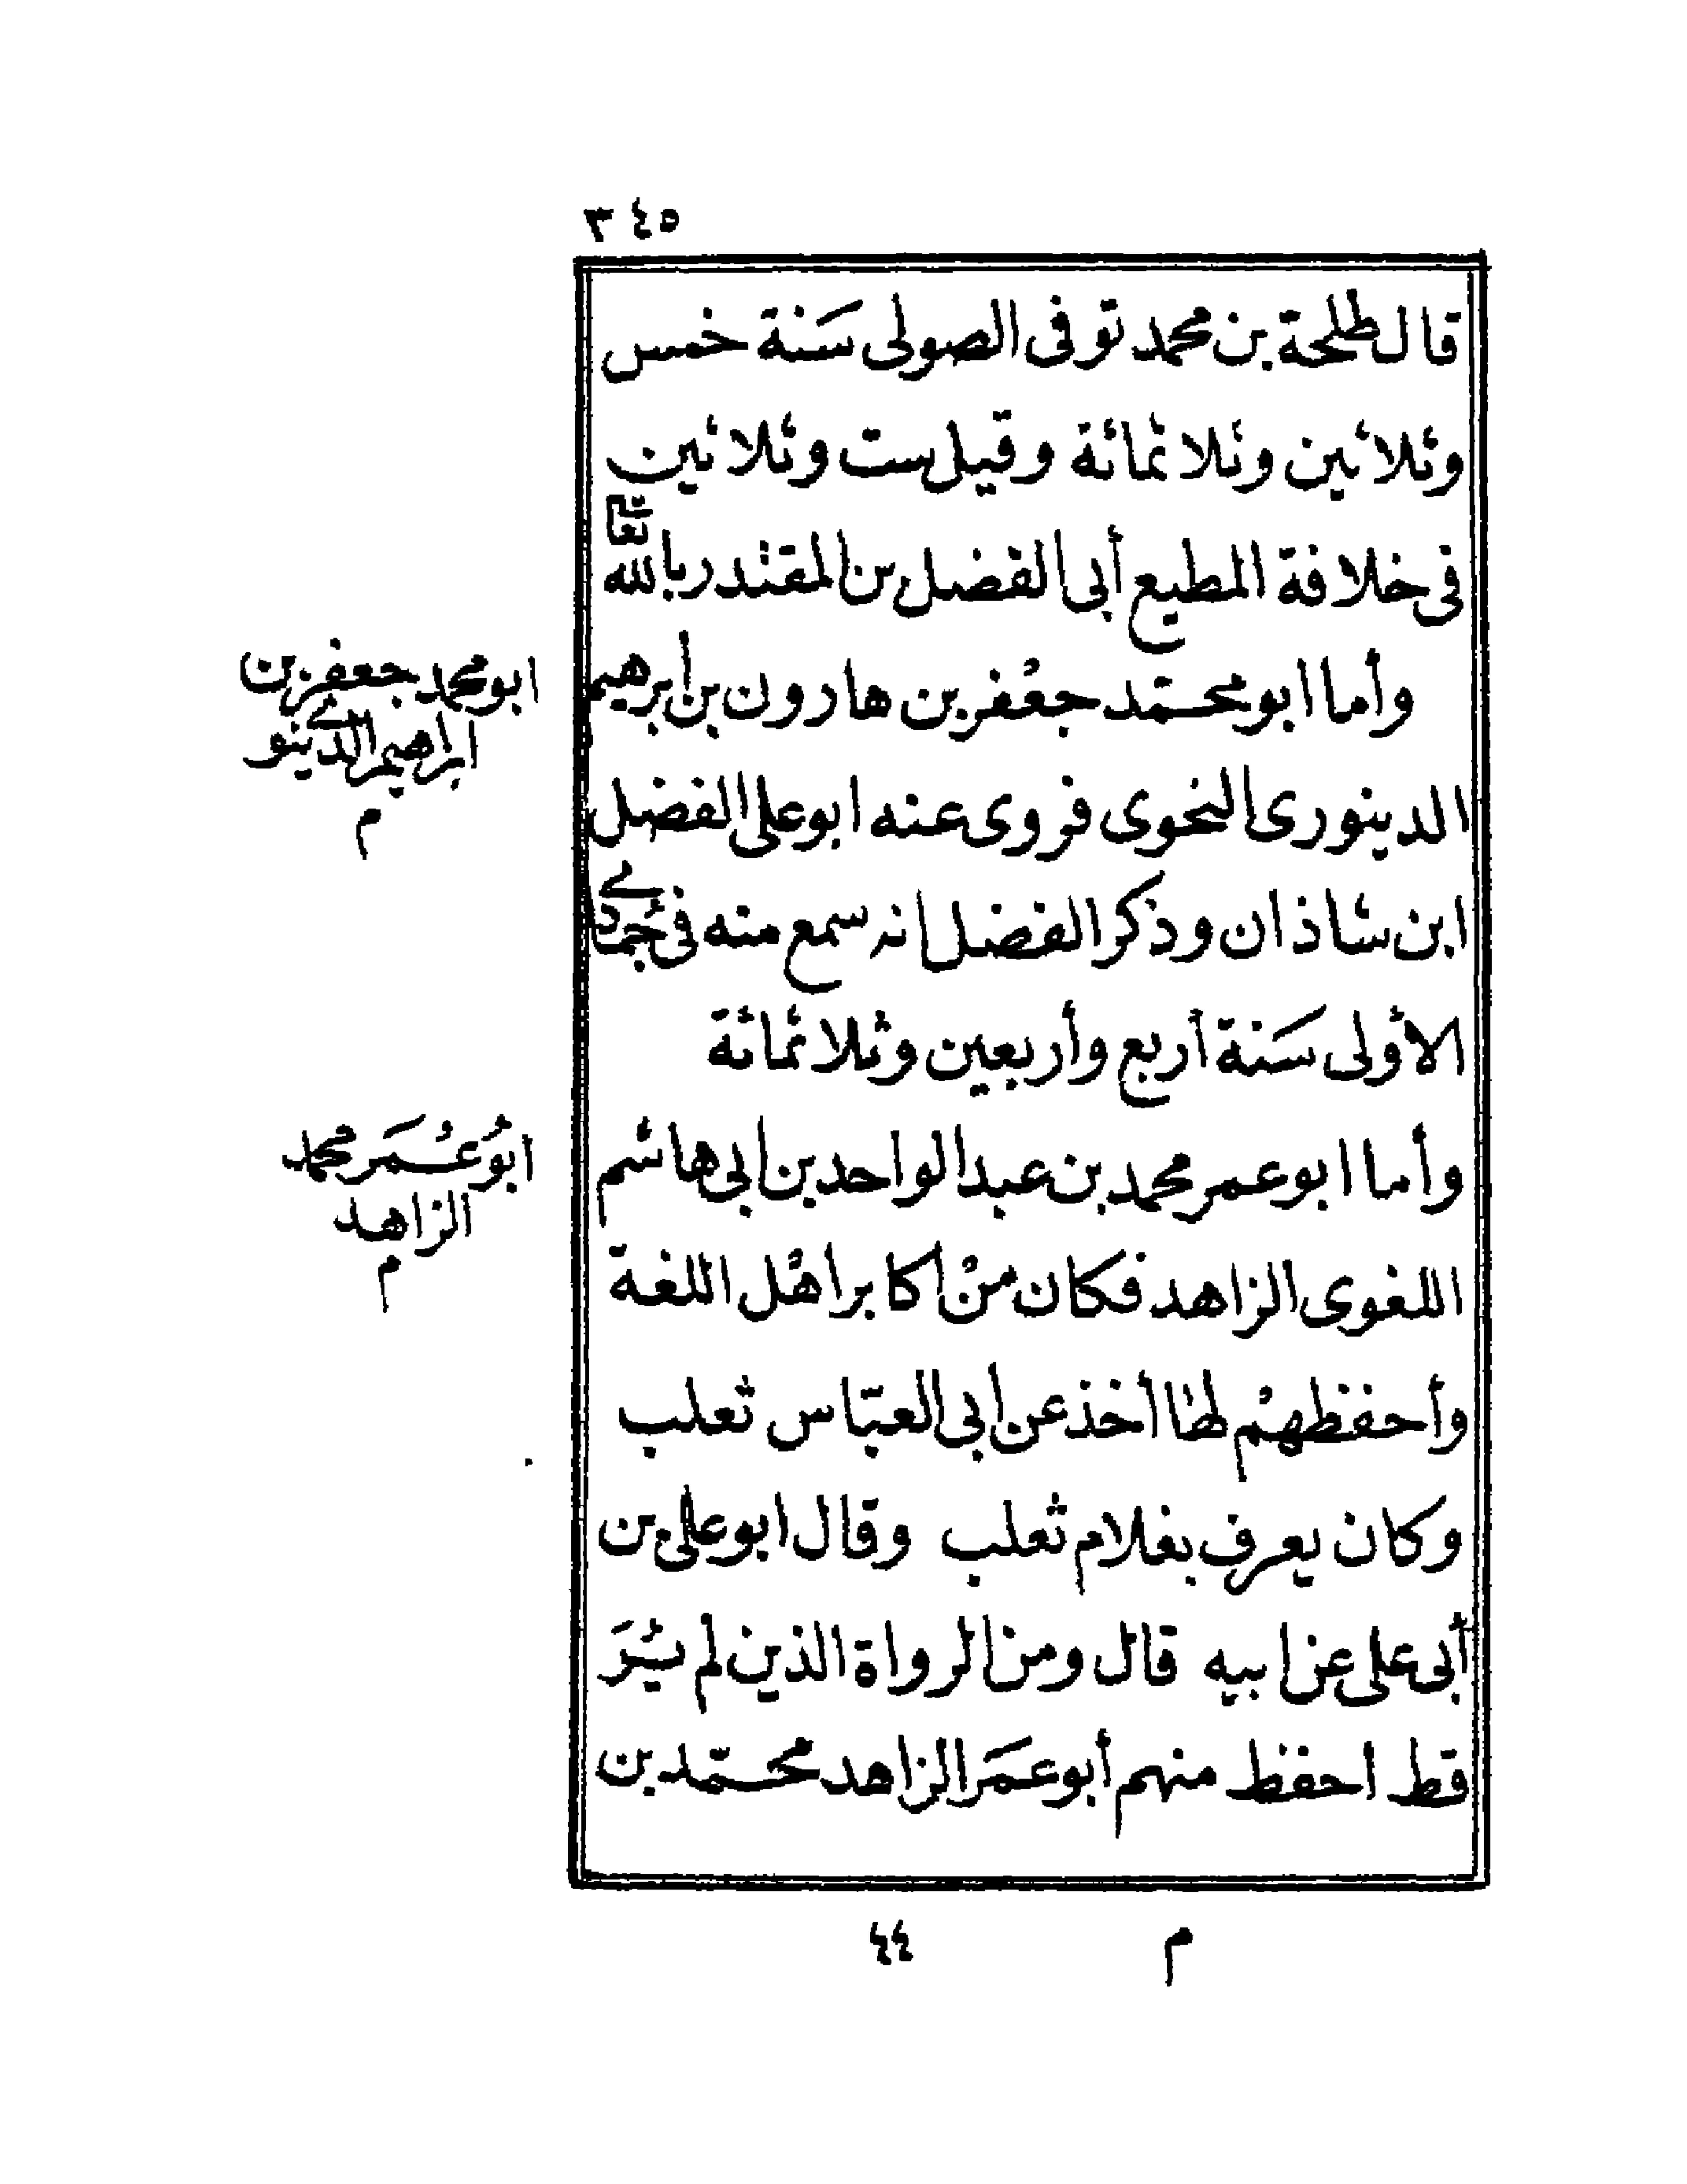 ٣٤٥
قال طلحة بن محمد توفى الصولى سَنة خمس
وثلاثين وثلاثمائة وقيل ست وثلاثين
فى خلافة المطيع أبى الفضل بن المقتدر بالله تعالى
وأما ابو محمّد جعفر بن هارون بن ابرهيم
الدينورى النحوى فروى عنه ابو على الفضل
ابن شاذان وذكر الفضل انه سمع منه فى جُمادى
الأولى سَنة أربع وأربعين وثلاثمائة
وأما ابو عمر محمد بن عبد الواحد بن ابى هاشم
اللغوى الزاهد فكان منْ اكابر اهْل اللغة
وأحفظهمْ لها أخذ عن ابى العبّاس ثعلب
وكان يعرف بغلام ثعلب وقال ابو على بن
أبى على عن ابيه قال ومن الرواة الذين لم يُرَ
قط احفظ منهم أبو عمَر الزاهد محمّد بن
ابو محمد جعفر بن
ابراهيم الدينورى
م
ابُو عُمَر محمد
الزاهد
م
م ٤٤